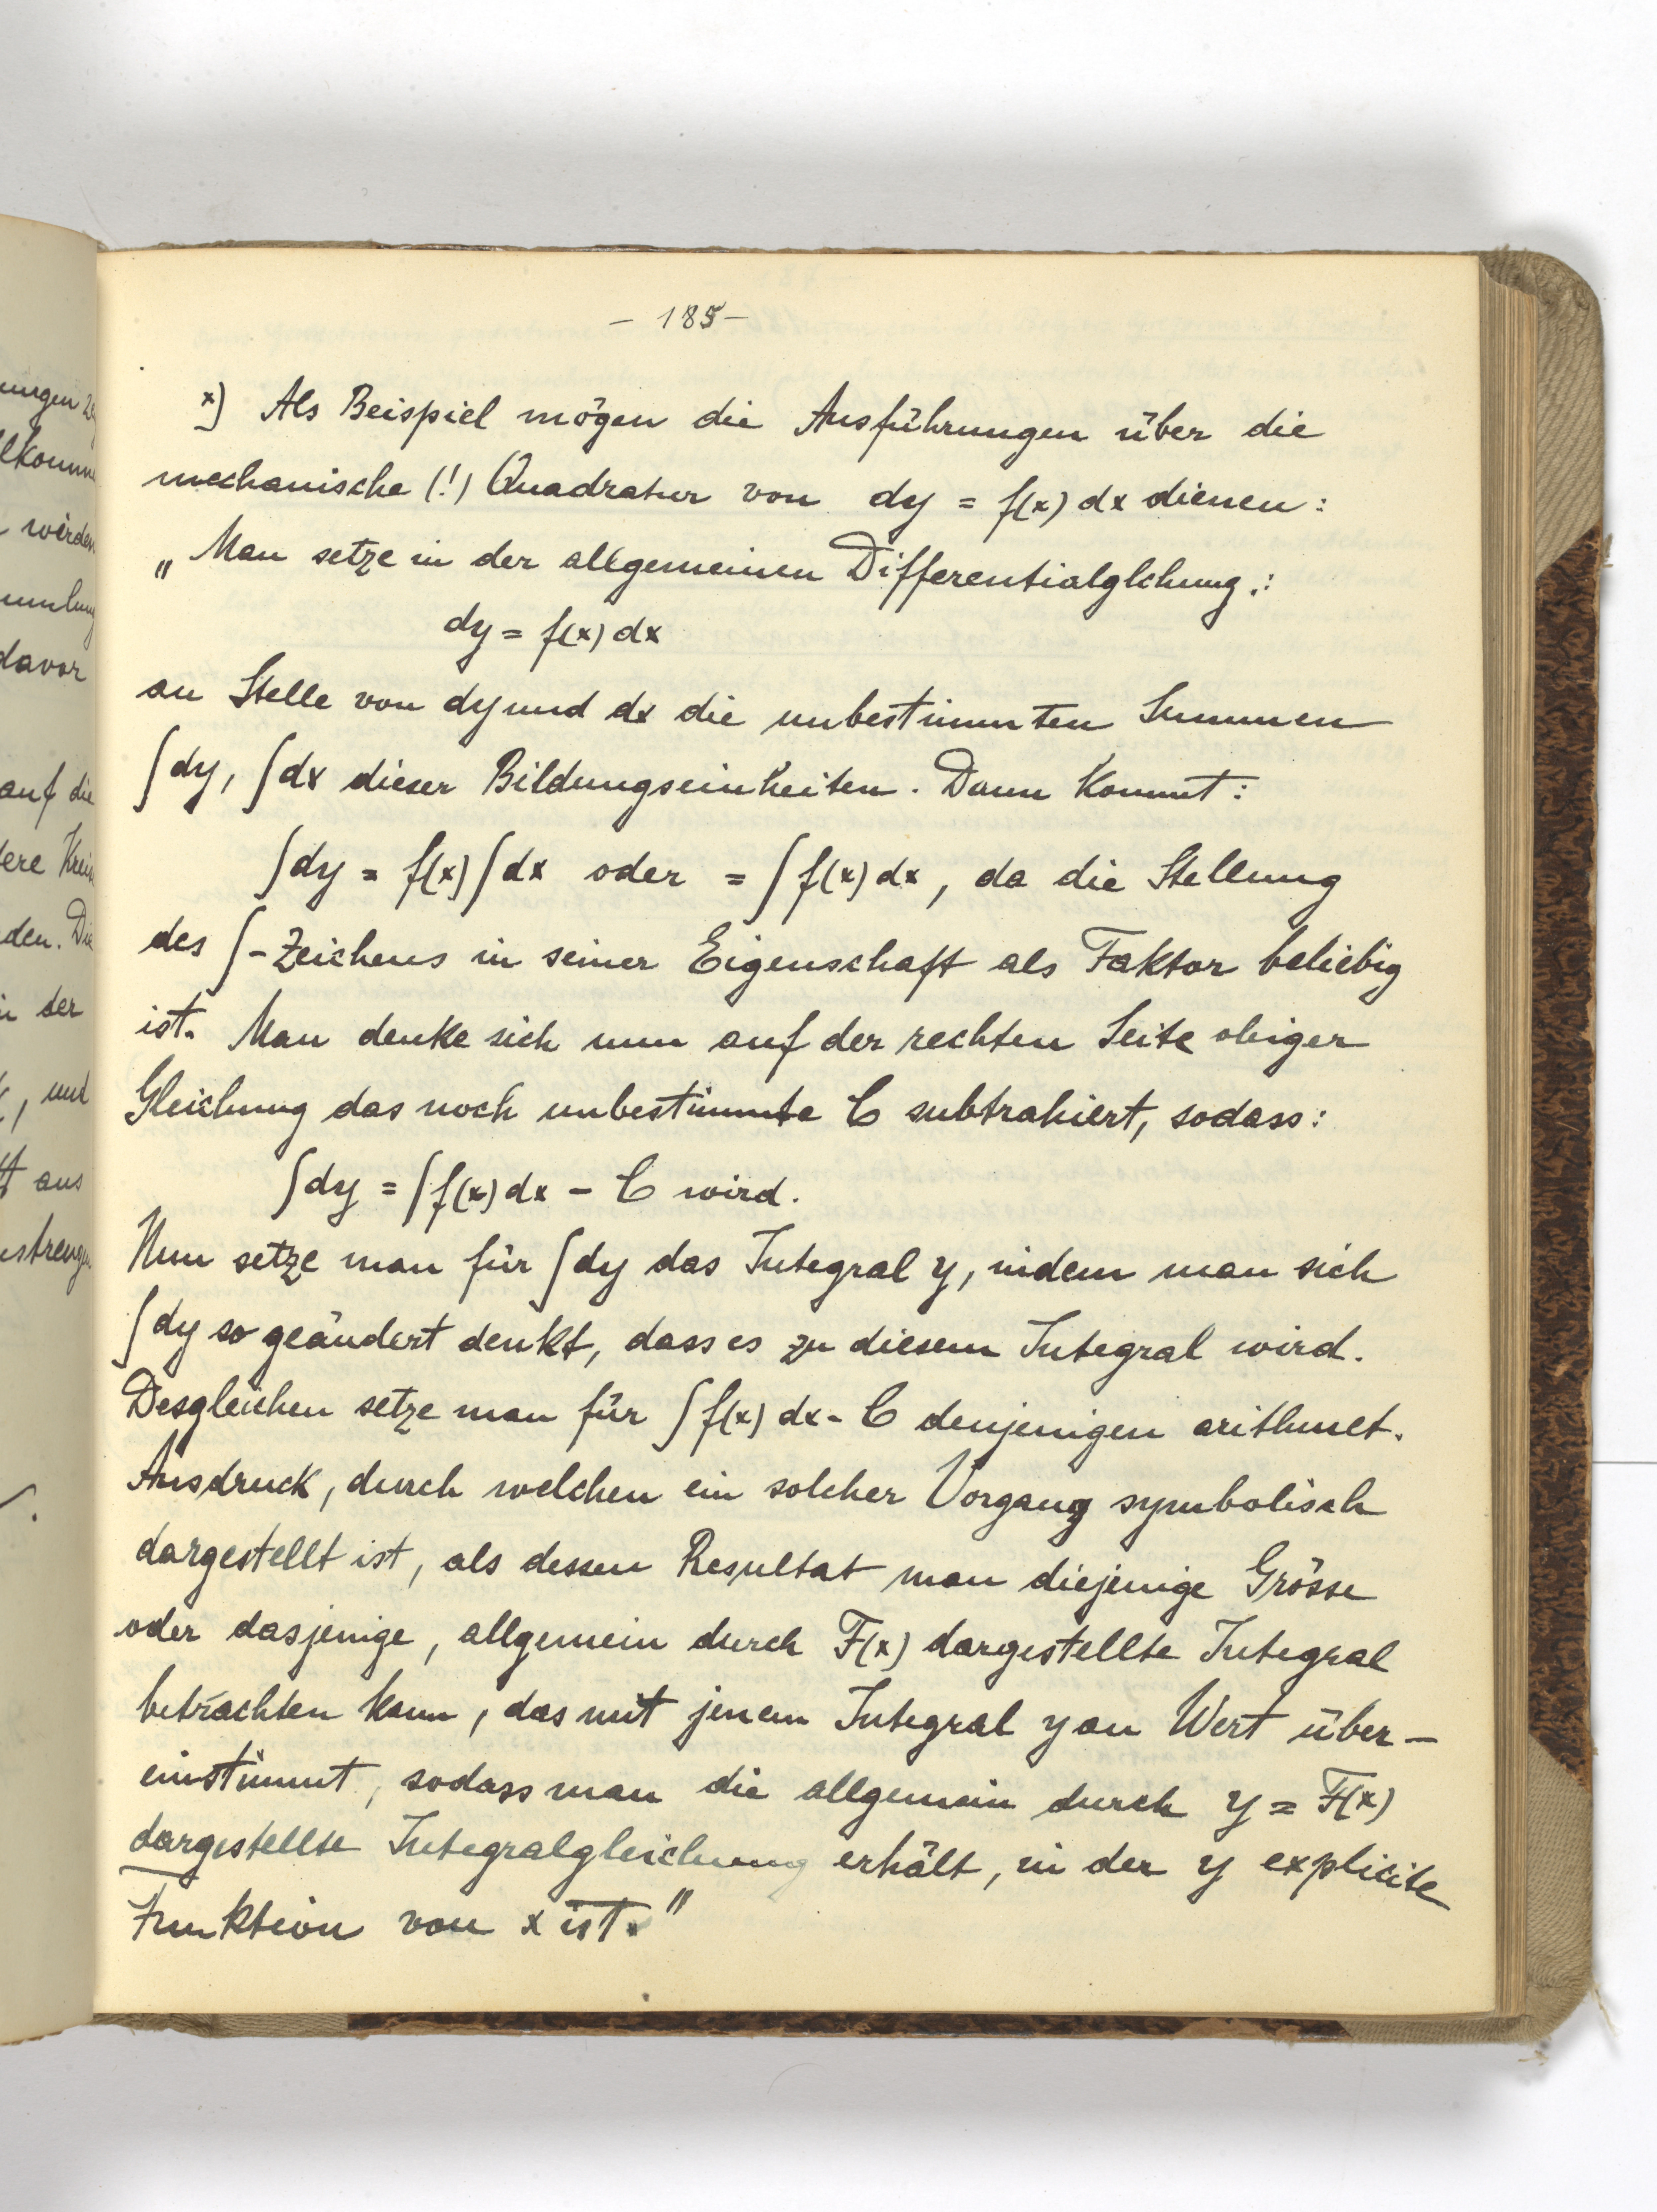 – 185 –
x) Als Beispiel mögen die Ausführungen über die
mechanische (!) Quadratur von dy = f(x) dx dienen:
„Man setze in der allgemeinen Differentialglchung.:
dy = f(x) dx
an Stelle von dy und dx die unbestimmten Summen
∫dy, ∫dx dieser Bildungseinheiten. Dann kommt:
∫dy = f(x)∫dx oder = ∫f(x)dx, da die Stellung
des ∫-Zeichens in seiner Eigenschaft als Faktor beliebig
ist. Man denke sich nun auf der rechten Seite obiger
Gleichung das noch unbestimmte C subtrahiert, sodass:
∫dy = ∫f(x)dx – C wird.
Nun setze man für ∫dy das Integral y, indem man sich
∫dy so geändert denkt, dass es zu diesem Integral wird.
Desgleichen setze man für ∫f(x) dx - C denjenigen arithmet.
Ausdruck, durch welchen ein solcher Vorgang symbolisch
dargestellt ist, als dessen Resultat man diejenige Grösse
oder dasjenige, allgemein durch F(x) dargestellte Integral
betrachten kann, das mit jenem Integral y an Wert über–
einstimmt, sodass man die allgemein durch y = F(x)
dargestellte Integralgleichung erhält, in der y explicite
Funktion von x ist."
ungen
werden
davor
auf die
den. Die
der
, und
aus